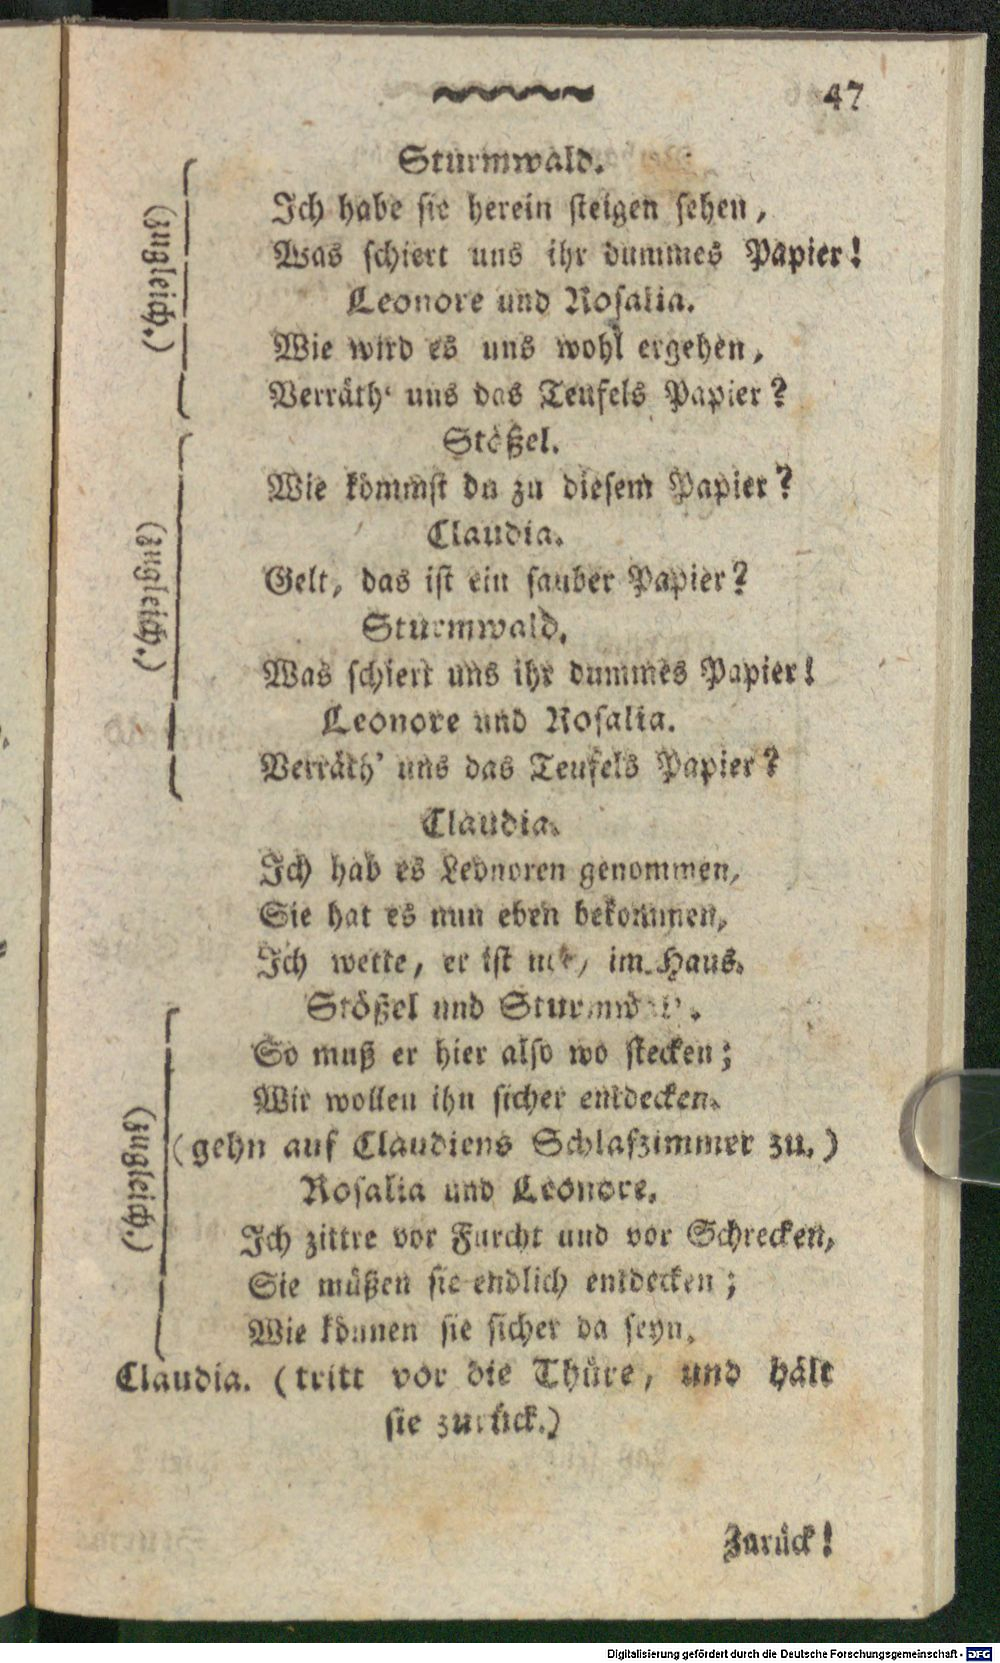 47
Sturmwald.
(zugleich.)
Ich habe sie herein steigen sehen,
Was schiert uns ihr dummes Papier!
Leonore und Rosalia.
Wie wird es uns wohl ergehen,
Verräth' uns das Teufels Papier?
Stößel.
(zugleich.)
Wie kömmst du zu diesem Papier?
Claudia.
Gelt, das ist ein sauber Papier?
Sturmwald.
Was schiert uns ihr dummes Papier!
Leonore und Rosalia.
Verräth' uns das Teufels Papier?
Claudia.
Ich hab es Leonoren genommen,
Sie hat es nun eben bekommen,
Ich wette, er ist im Haus.
Stößel und Sturmwald.
(zugleich.)
So muß er hier also wo stecken;
Wir wollen ihn sicher entdecken.
(gehn auf Claudiens Schlafzimmer zu.)
Rosalia und Leonore.
Ich zittre vor Furcht und vor Schrecken,
Sie müßen sie endlich entdecken;
Wie können sie sicher da seyn.
Claudia. (tritt vor die Thüre, und hält
sie zurück.)
Zurück!
Digitalisierung gefördert durch die Deutsche Forschungsgemeinschaft - DFG